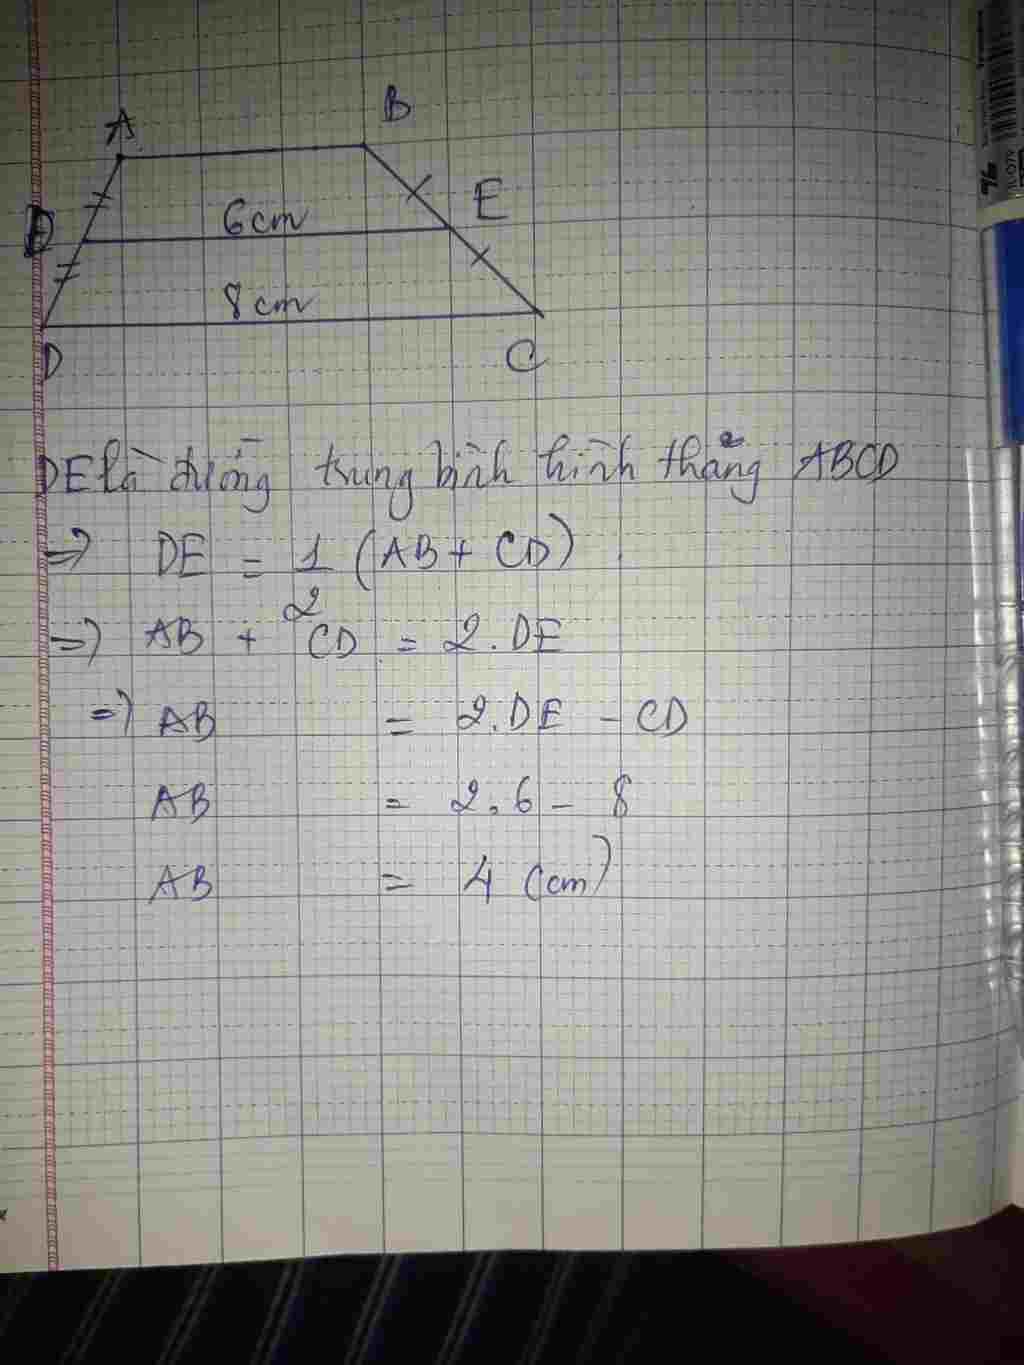 A
B
E
6cm
8cm
D
C
DE là đường trung bình hình thang ABCD
=> DE = 1/2 (AB + CD)
=> AB + CD = 2.DE
=> AB = 2.DE - CD
AB = 2.6 - 8
AB = 4 (cm)